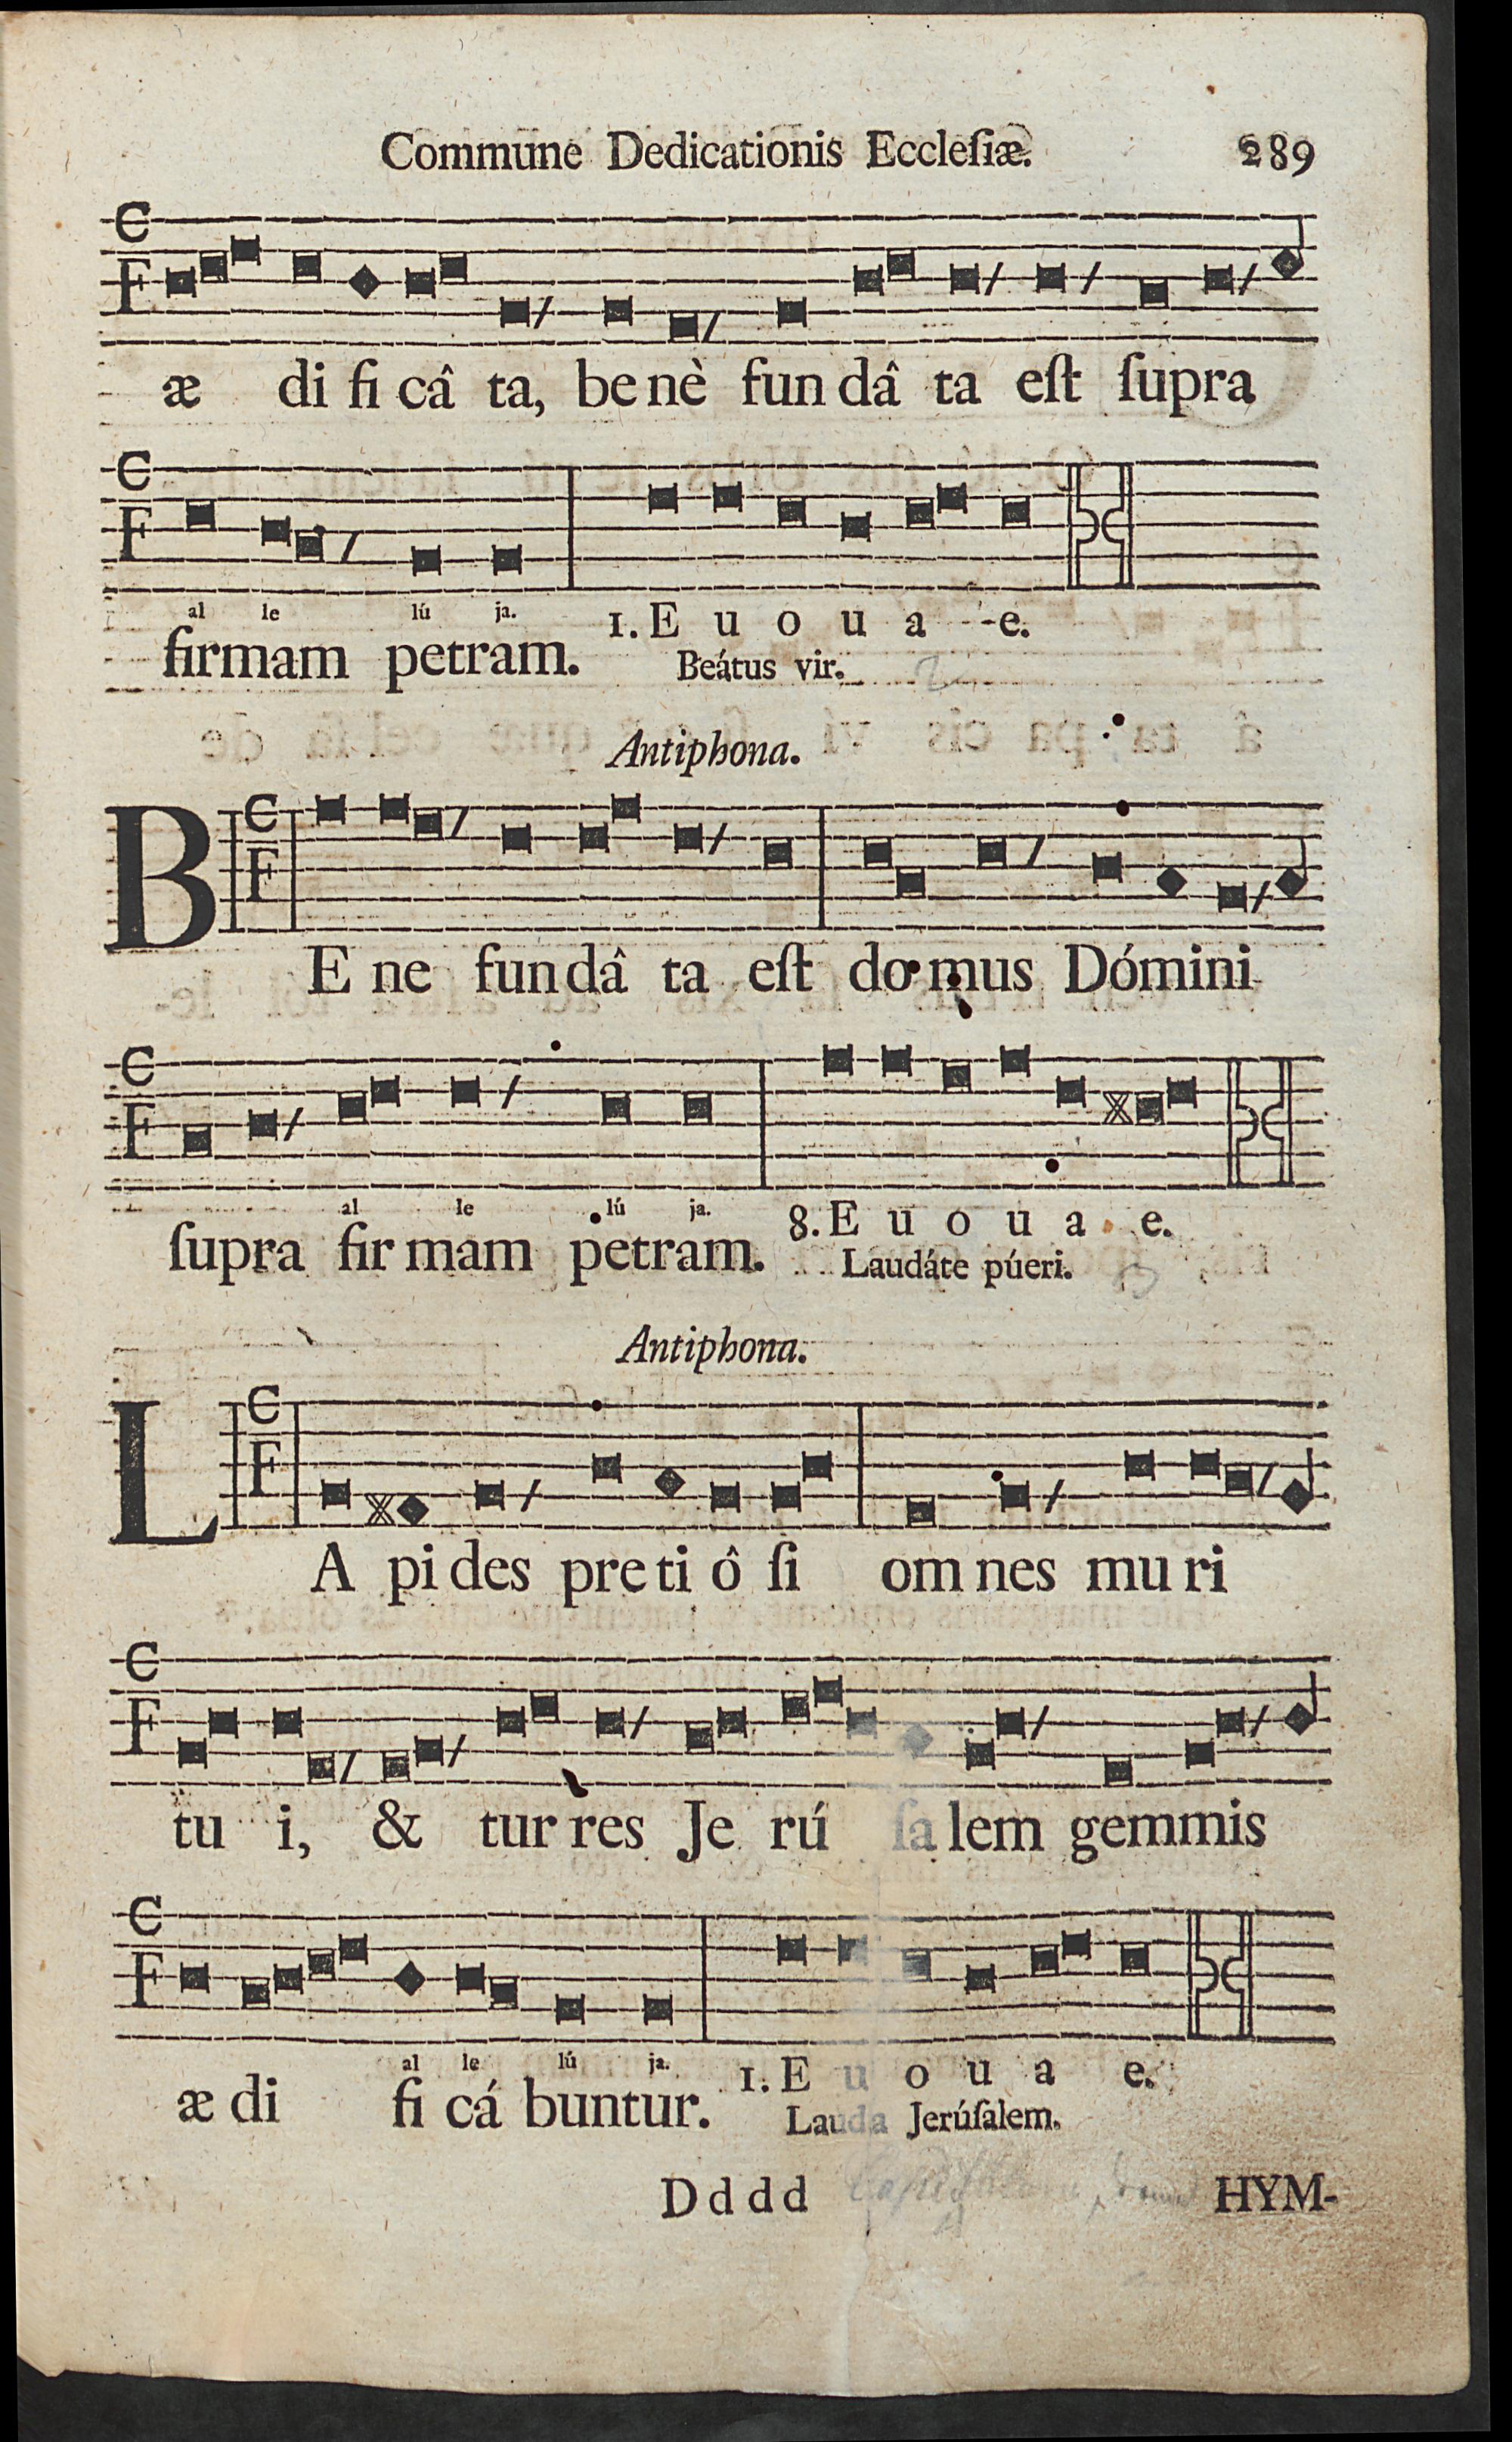 Commune Dedicationis Eccleſiæ. 289
æ di fi câ ta, be nè fun dâ ta eſt ſupra
al le lú ja. 1. E u o u a e.
firmam petram. Beátus vir.
Antiphona.
B E ne fun dâ ta eſt do mus Dómini
al le lú ja. 8. E u o u a e.
ſupra fir mam petram. Laudáte púeri.
Antiphona.
L A pi des pre ti ô ſi om nes mu ri
tu i, & tur res Je rú ſa lem gemmis
al le lú ja. 1. E u o u a e.
æ di fi cá buntur. Lauda Jerúſalem.
D d d d HYM-